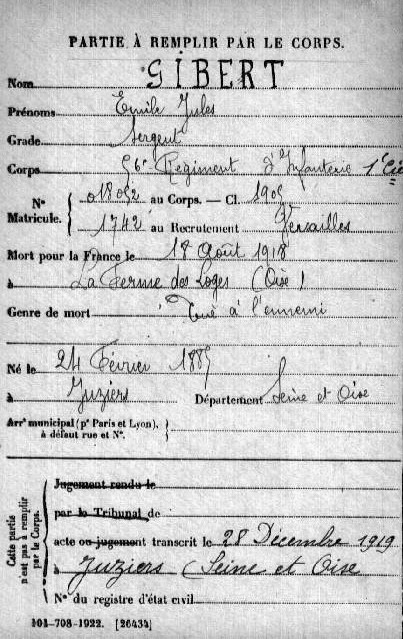 PARTIE À REMPLIR PAR LE CORPS.
Nom GIBERT
Prénoms Emile Jules
Grade Sergent
Corps 56e Régiment d'Infanterie 1e Cie
N° Matricule. { 018052 au Corps. — Cl. 1905
1742 au Recrutement Versailles
Mort pour la France le 18 Août 1918
à La Ferme des Loges (Oise)
Genre de mort Tué à l'ennemi
Né le 24 Février 1885
à Juziers Département Seine et Oise
Arrt municipal (pr Paris et Lyon), }
à défaut rue et N°.
Cette partie n'est pas à remplir par le Corps.
Jugement rendu le
par le Tribunal de
acte ou jugement transcrit le 28 Décembre 1919
à Juziers (Seine et Oise
N° du registre d'état civil
101-708-1922. [26434]